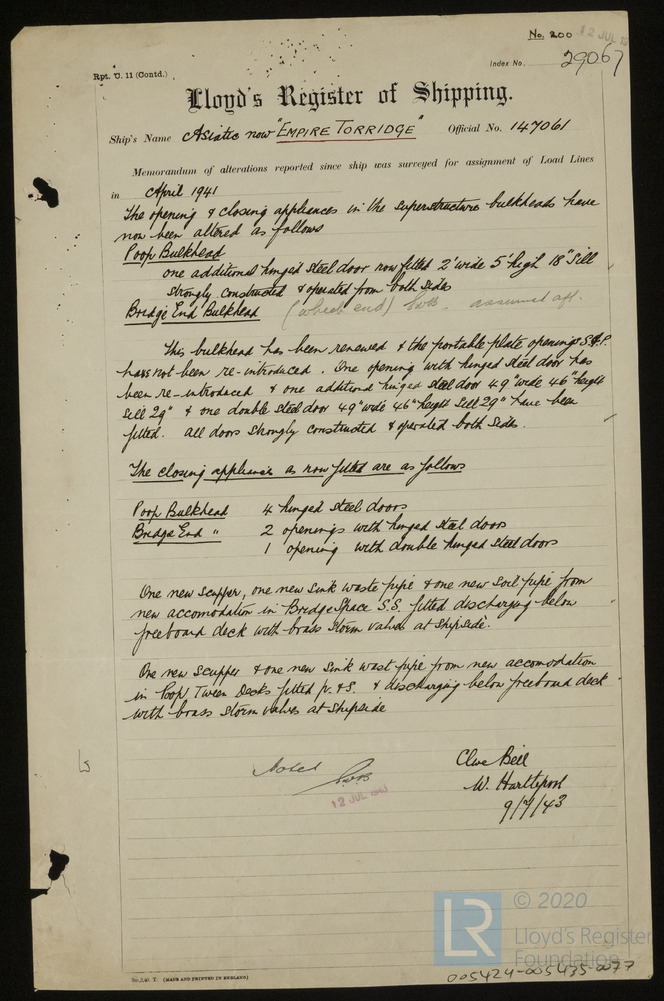 No. 200
12 JUL
Index No. 29067
Rpt. C. 11 (Contd.)
Lloyd's Register of Shipping.
Ship's Name Asiatic now "EMPIRE TORRIDGE" Official No. 147061
Memorandum of alterations reported since ship was surveyed for assignment of Load Lines
in April 1941
The opening & closing appliances in the superstructure bulkheads have
now been altered as follows
Poop Bulkhead
one additional hinged steel door now fitted 2' wide 5' high 18" sill
strongly constructed & operated from both sides
Bridge End Bulkhead (which end)
This bulkhead has been renewed & the portable plate openings S.&P.
have not been re-introduced. One opening with hinged steel door has
been re-introduced & one additional hinged steel door 49" wide 46" height
sill 29" & one double steel door 49" wide 46" height sill 29" have been
fitted. all doors strongly constructed & operated both sides.
The closing appliances as now fitted are as follows
Poop Bulkhead 4 hinged steel doors
Bridge End " 2 openings with hinged steel doors
1 opening with double hinged steel doors
One new scupper, one new sink waste pipe & one new soil pipe from
new accomodation in Bridge Space S.S. fitted discharging below
freeboard deck with brass storm valves at shipside.
One new scupper & one new sink wast pipe from new accomodation
in Poop Tween Decks fitted p. & S. & discharging below freeboard deck
with brass storm valves at shipside
Noted
12 JUL 1943
Clive Bell
W. Hartlepool
9/7/43
T. (MADE AND PRINTED IN ENGLAND)
LR © 2020
Lloyd's Register
Foundation
005424-005435-0077